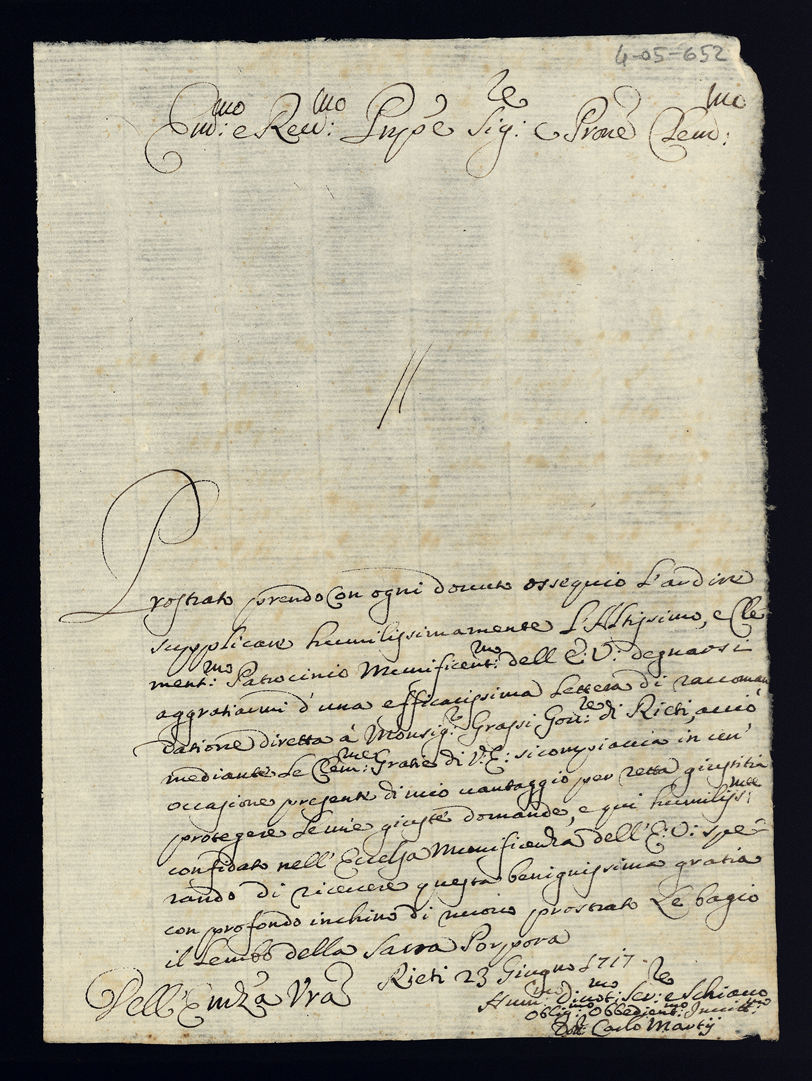 4-05-652
Em:mo e Reu:mo Prnpe Sig:re e Prone Clem:mo
Prostrato prendo Con ogni douuto ossequio L'ardire
supplicare humilissimamente L'Altissimo, e Cle
ment:mo Patrocinio Munificent:mo dell'E: V: degnarsi
aggratiarmi d'una efficacissima Lettera di raccoman
datione diretta à Monsig:re Grassi Gou:re di Rieti, acciò
mediante Le Clem:me Gratie di V: E: si compiaccia in un'
occasione presente di mio uantaggio per retta giustitia
protegere Le mie giuste domande, e qui humiliss:mte
confidato nell'Eccelsa Munificenza dell'E: V: spe-
rando di riceuere questa benignissima gratia
con profondo inchino di nuouo prostrato Le bagio
il Lembo della Sacra Porpora
Rieti 23 Giugno 1717.
Dell'Emza Vra
Hum:mo Diuot:mo Ser:re e Schiauo
Oblig:mo Obbedient:mo
Dott: Carlo Martij